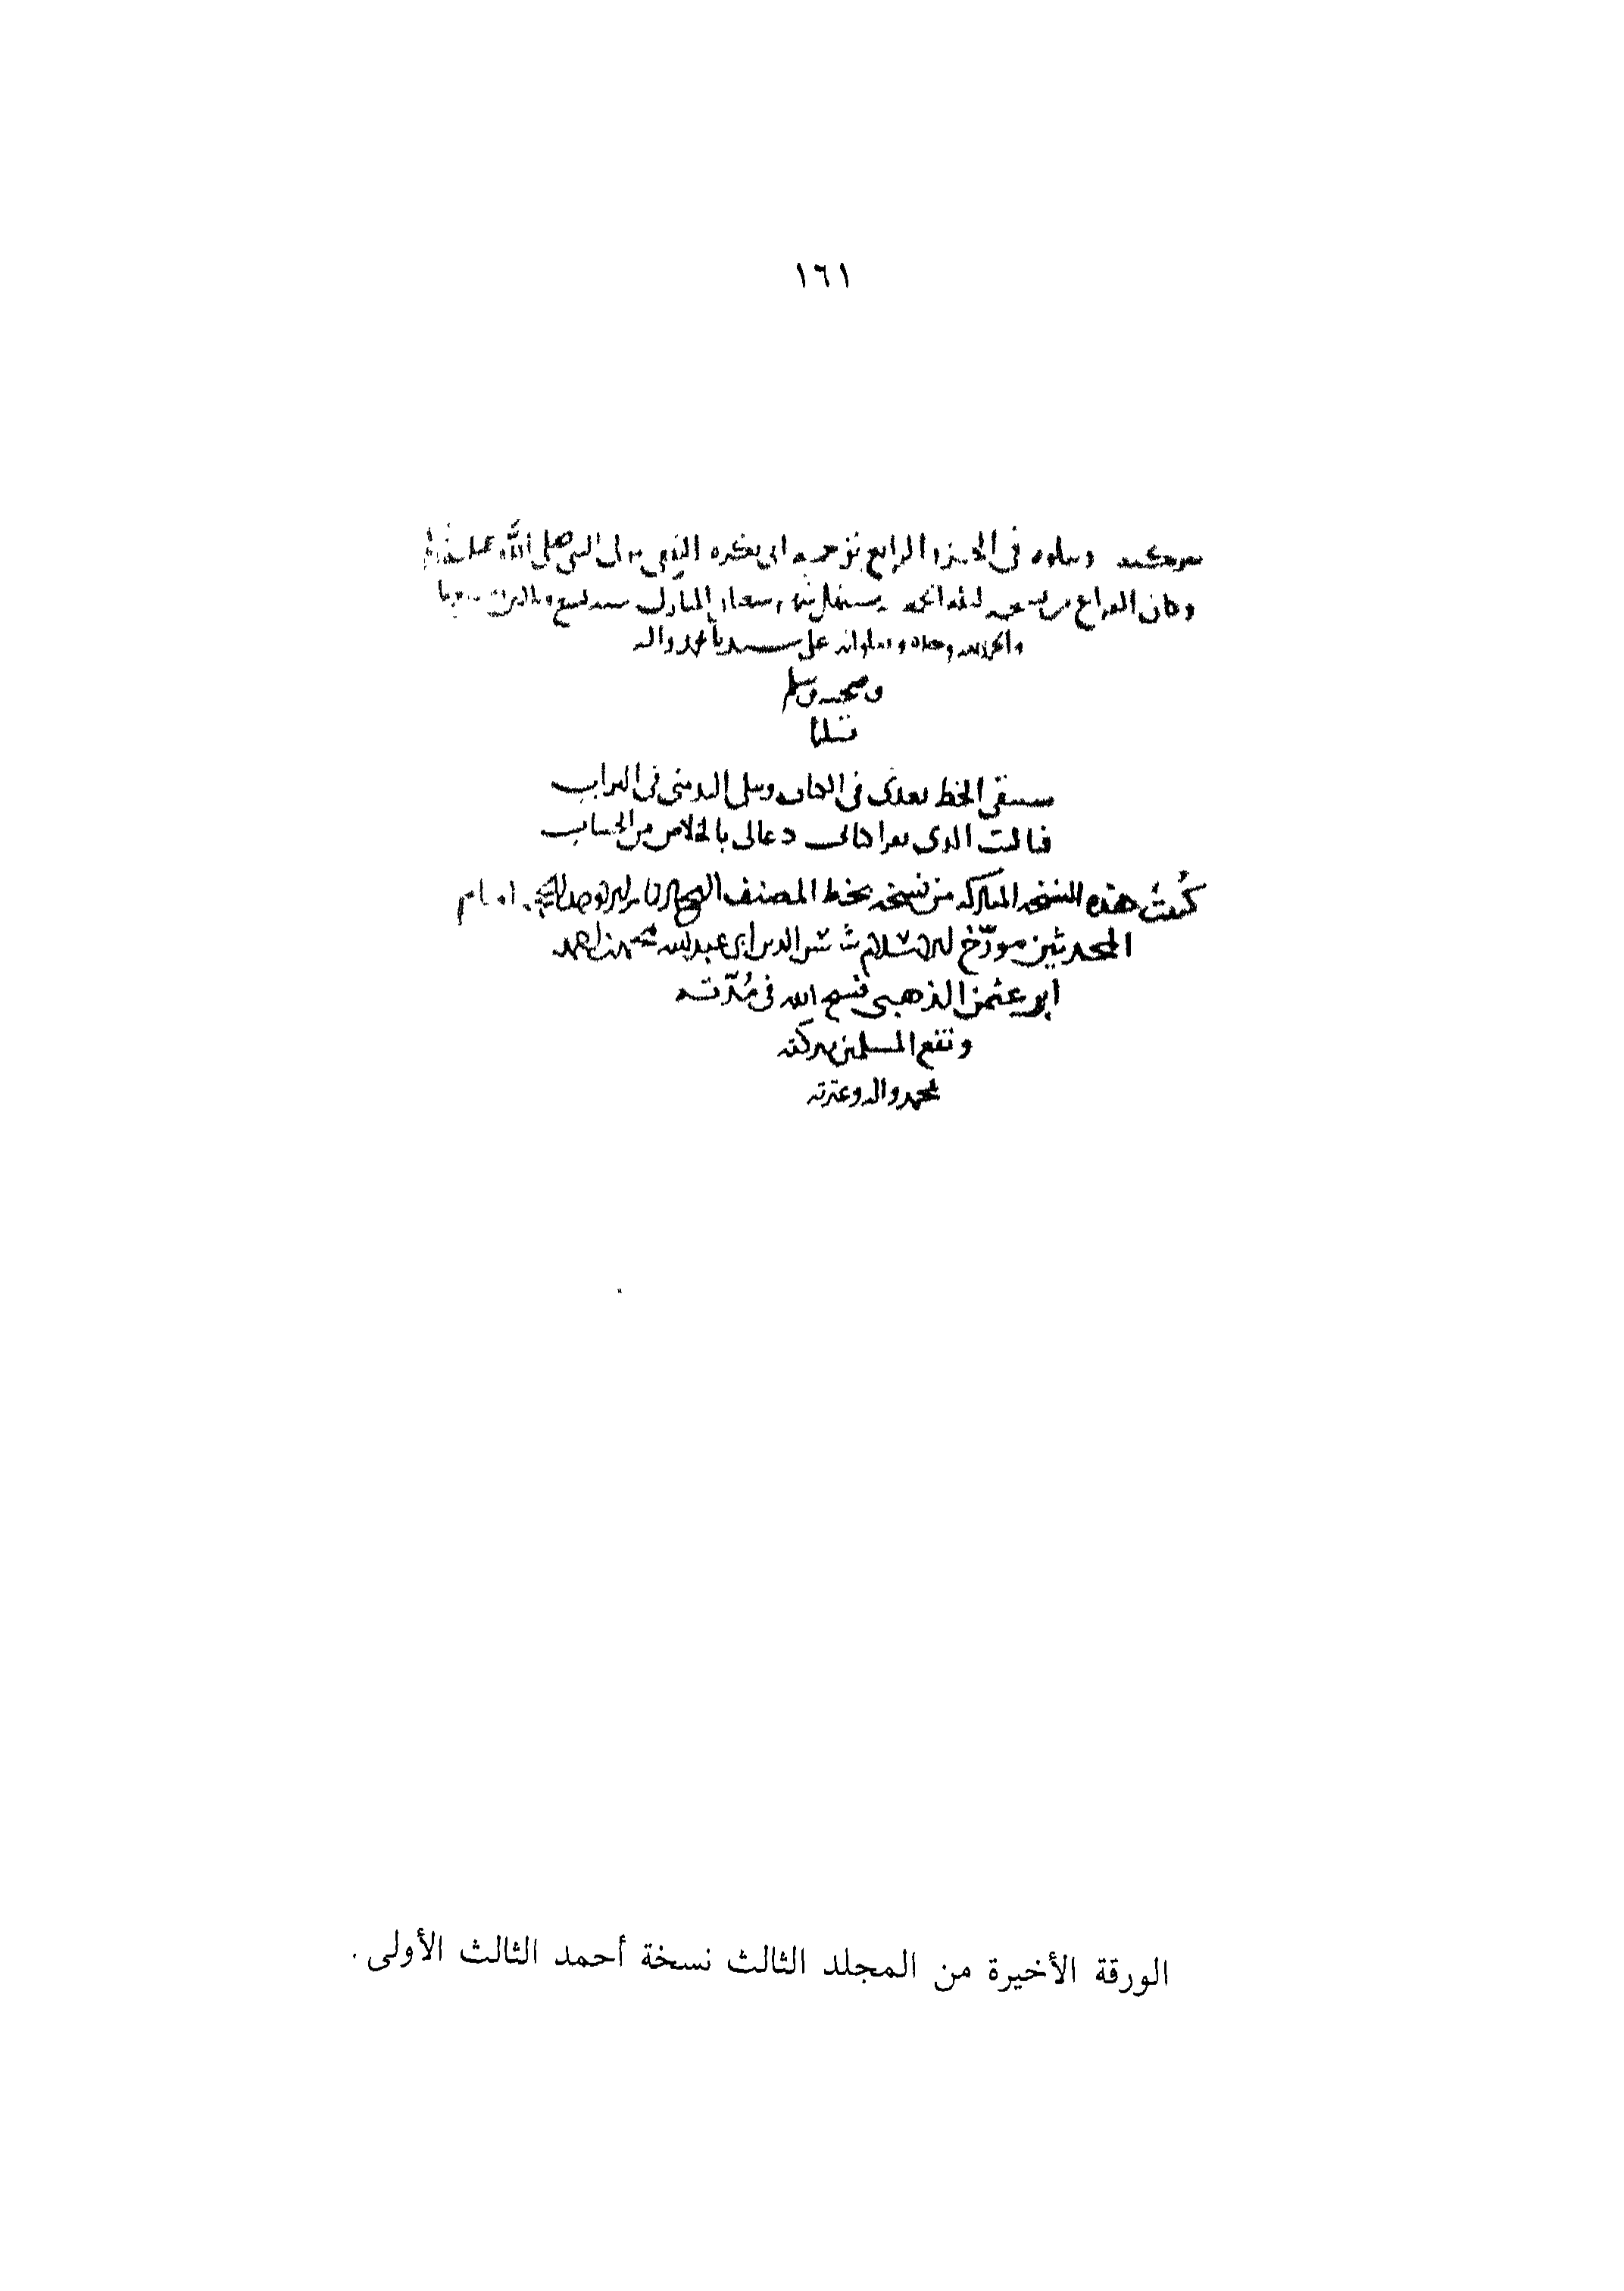 ١٦١
ويتلوه في الجزء الرابع ترجمة ابي بكره الثقفي مولى النبي صلى الله عليه
وكان الفراغ من نسخه شعبان المبارك سنه تسع
والحمد لله وحده وصلواته على سيدنا محمد واله
وصحبه وسلم
تسليما
سيبقى الخط بعدى في الكتاب وتبلى اليد منى في التراب
فياليت الذى يقرا كتابي دعالى بالخلاص من الحساب
كُتبت هذه النسخه المباركه من نسخه بخط المصنف امام
المحدثين مورّخ الاسلام شمس الدين ابي عبد الله محمد بن احمد
ابن عثمن الذهبي فسح الله في مُدّته
ونفع المسلمين ببركته
بمحمد واله وعترته
الورقة الأخيرة من المجلد الثالث نسخة أحمد الثالث الأولى .